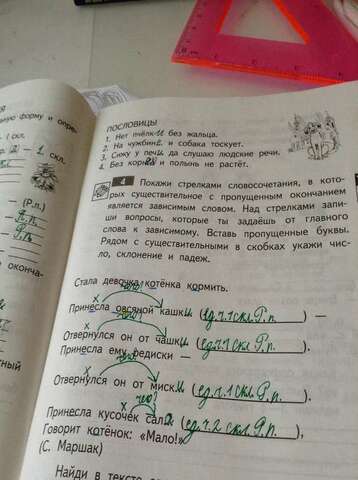 ную форму и опре-
1 скл.
1 скл.
(Р.п.)
П.п.
Р.п.
оконча-
ПОСЛОВИЦЫ
1. Нет пчёлки без жальца.
2. На чужбине и собака тоскует.
3. Сижу у печи да слушаю людские речи.
4. Без корня и полынь не растёт.
4 Покажи стрелками словосочетания, в кото-
рых существительное с пропущенным окончанием
является зависимым словом. Над стрелками запи-
ши вопросы, которые ты задаёшь от главного
слова к зависимому. Вставь пропущенные буквы.
Рядом с существительными в скобках укажи чис-
ло, склонение и падеж.
Стала девочка котёнка кормить.
х
Принесла овсяной кашки (ед.ч.1скл Р.п.) —
х
Отвернулся он от чашки (ед.ч.1скл Р.п.).
Принесла ему редиски —
х
Отвернулся он от миски (ед.ч.1скл Р.п.).
х чего?
Принесла кусочек сала (ед.ч.2 скл. Р.п.),
Говорит котёнок: «Мало!»
(С. Маршак)
Найди в тексте